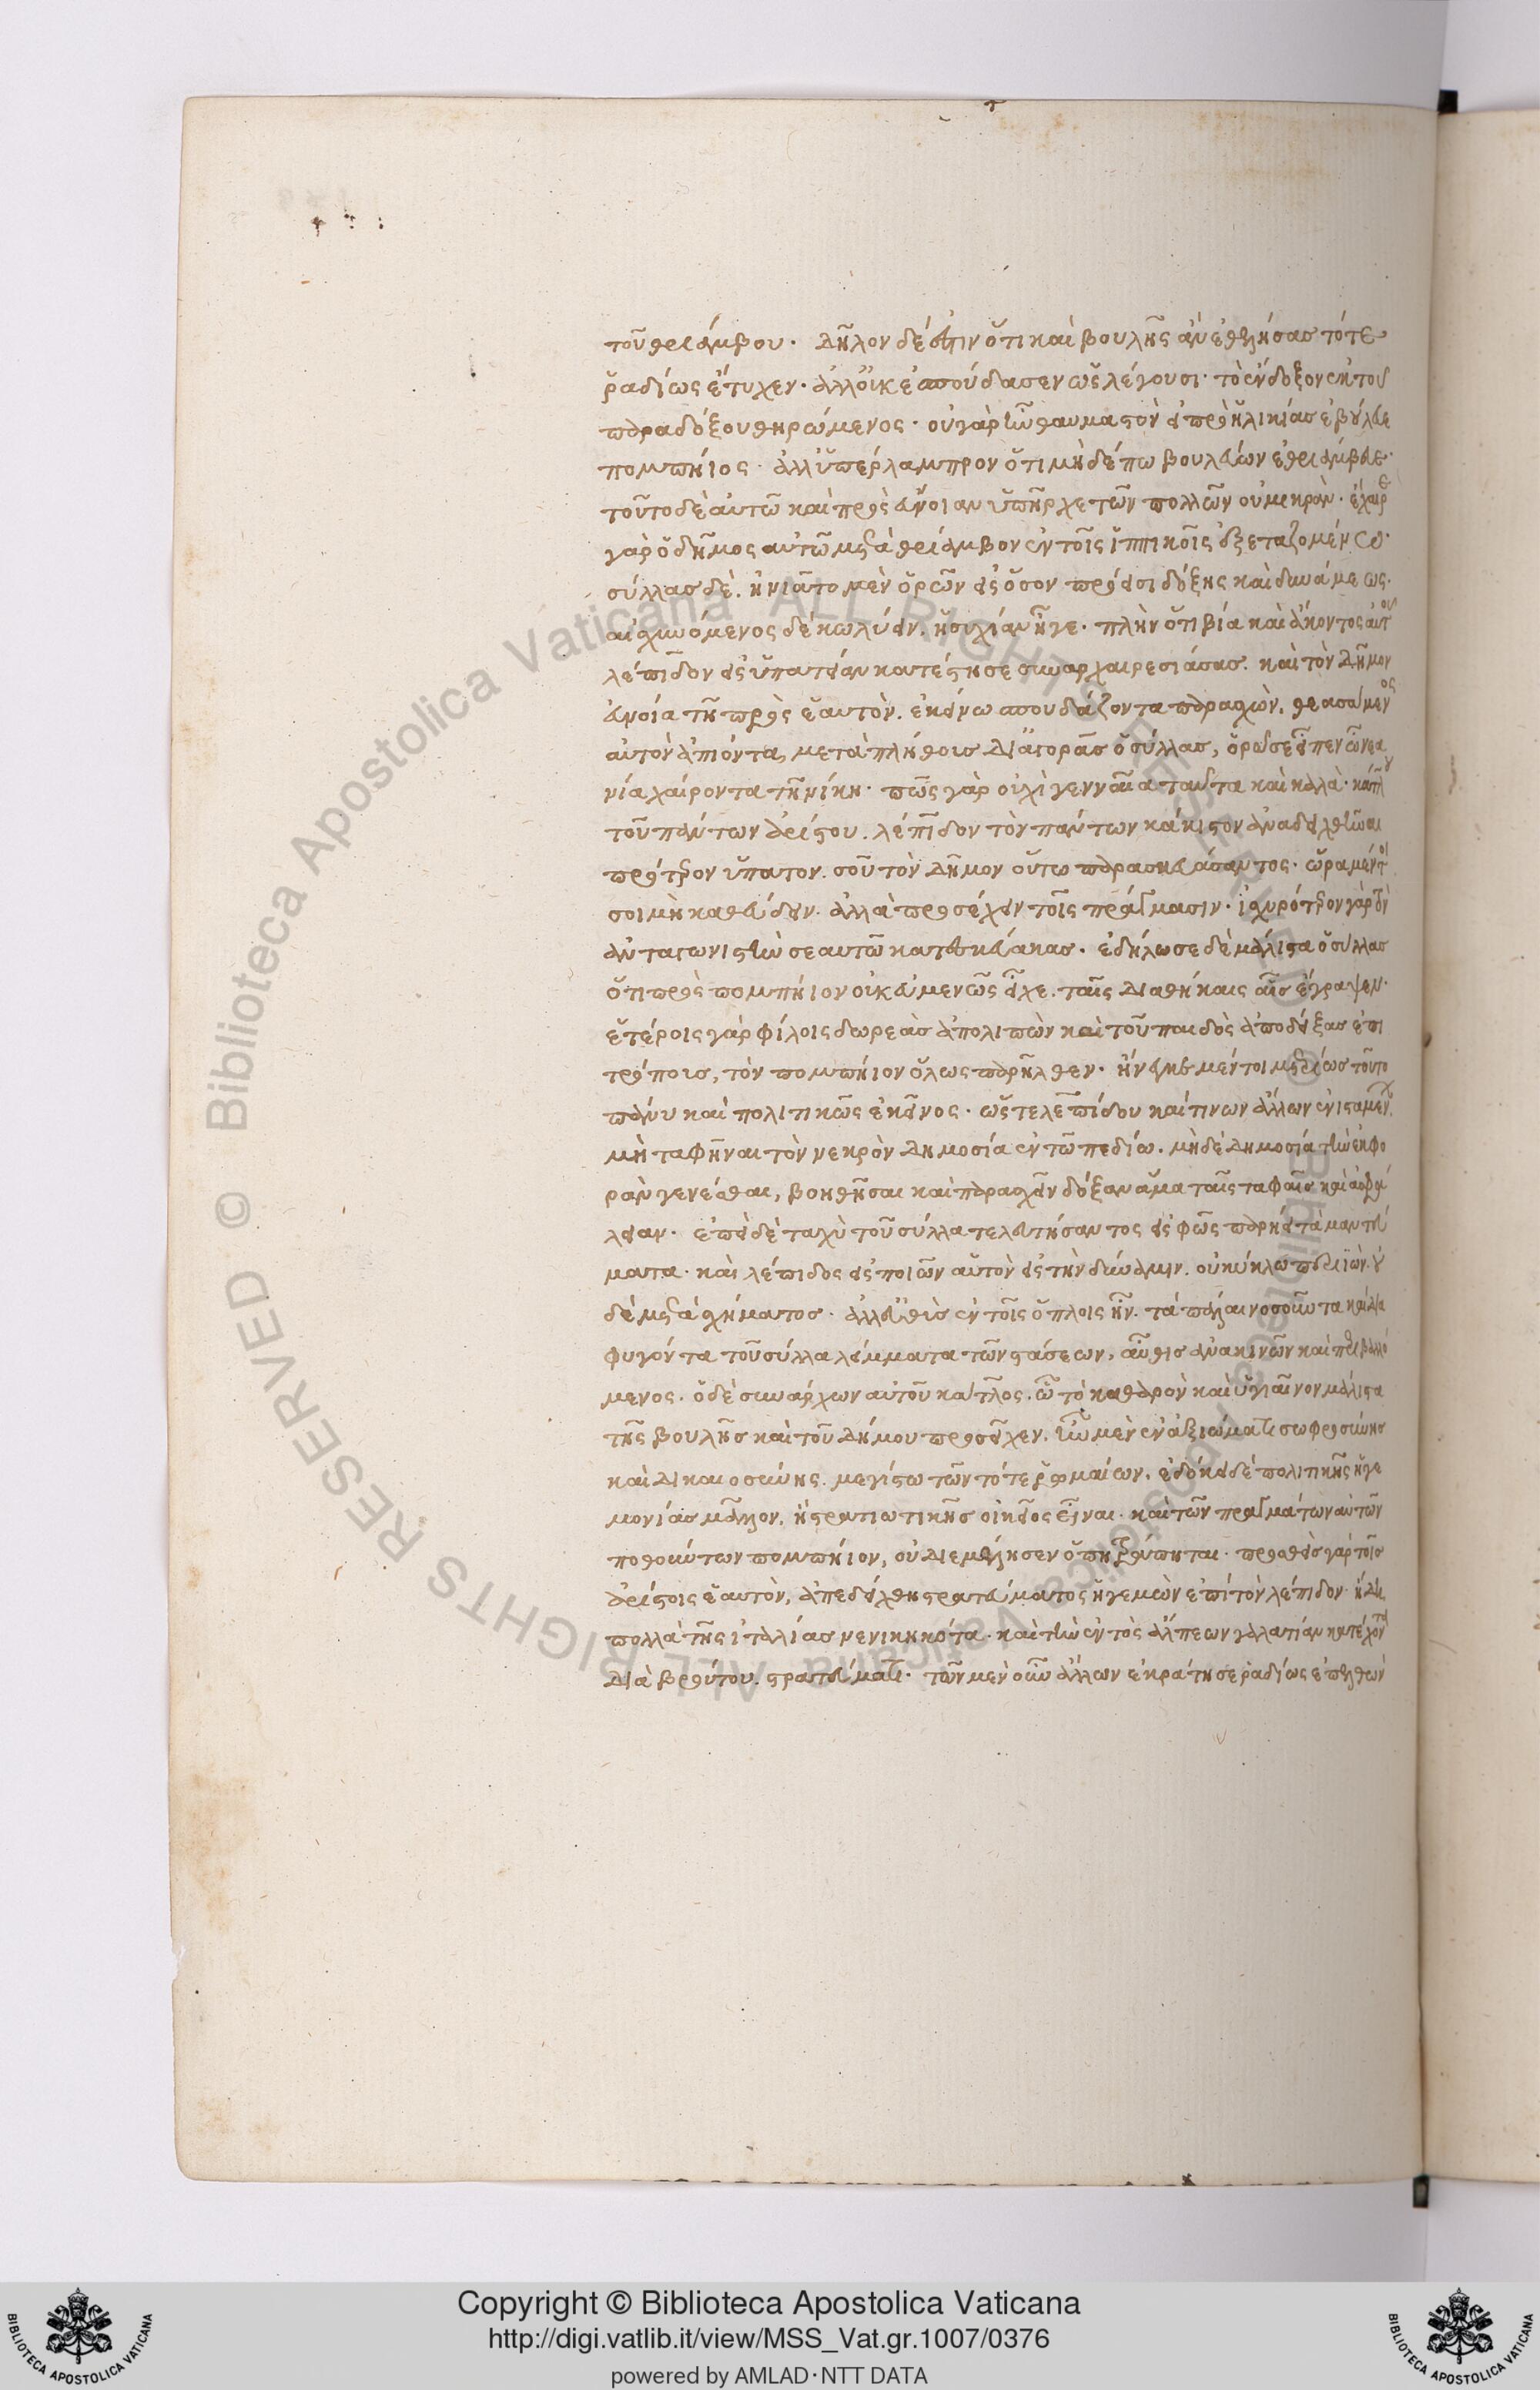 τοῦ θριάμβου. Δῆλον δέ ἐστιν ὅτι καὶ βουλῆς ἂν ἐθελήσας τότε
ῥαδίως ἔτυχεν. ἀλλ' οὐκ ἐσπούδασεν ὡς λέγουσι. τὸ ἔνδοξον ἐκ τοῦ
παραδόξου θηρώμενος. οὐ γὰρ ἦν θαυμαστὸν εἰ πρὸ ἡλικίας ἐβούλευε
πομπήιος. ἀλλ' ὑπέρλαμπρον ὅτι μηδέπω βουλεύων ἐθριάμβευε.
τοῦτο δὲ αὐτῶ καὶ πρὸς εὔνοιαν ὑπῆρχε τῶν πολλῶν οὐ μικρὰν. ἔχαιρε
γὰρ ὁ δῆμος αὐτῶ μετὰ θρίαμβον ἐν τοῖς ἱππικοῖς ἐξεταζομένω.
σύλλας δὲ. ἠνιᾶτο μὲν ὁρῶν εἰς ὅσον πρόεισι δόξης καὶ δυνάμεως.
αἰσχυνόμενος δὲ κωλύειν. ἡσυχίαν ἦγε. πλὴν ὅτι βία καὶ ἄκοντος αὐτοῦ
λέπιδον εἰς ὑπατείαν κατέστησε συναρχαιρεσιάσας. καὶ τὸν Δῆμον
εὐνοία τῆ πρὸς ἑαυτὸν. ἐκείνω σπουδάζοντα παρασχὼν. θεασάμενος
αὐτὸν ἀπιόντα, μετὰ πλήθους Δι' ἀγορᾶς ὁ σύλλας, ὁρῶ σε εἶπεν ὦ νεα
νία χαίροντα τῆ νίκη. πῶς γὰρ οὐχὶ γενναῖα ταῦτα καὶ καλὰ. κάτλου
τοῦ πάντων ἀρίστου. λέπιδον τὸν πάντων κάκιστον ἀναδειχθῆναι
πρότερον ὕπατον. σοῦ τὸν Δῆμον οὕτω παρασκευάσαντος. ὥρα μέντοι
σοι μὴ καθεύδειν. ἀλλὰ προσέχειν τοῖς πράγμασιν. ἰσχυρότερον γὰρ τὸν
ἀνταγωνιστὴν σεαυτῶ κατεσκεύακας. ἐδήλωσε δὲ μάλιστα ὁ σύλλας
ὅτι πρὸς πομπήιον οὐκ εὐμενῶς εἶχε. ταῖς Διαθήκαις αἷς ἔγραψεν.
ἑτέροις γὰρ φίλοις δωρεὰς ἀπολιπὼν καὶ τοῦ παιδὸς ἀποδείξας ἐπι
τρόπους, τὸν πομπήιον ὅλως παρῆλθεν. ἤνεγκε μέντοι μετρίως τοῦτο
πάνυ καὶ πολιτικῶς ἐκεῖνος. ὥστε λεπίδου καί τινων ἄλλων ἐνισταμένων
μὴ ταφῆναι τὸν νεκρὸν Δημοσία ἐν τῶ πεδίω. μηδὲ Δημοσία τὴν ἐκφο
ρὰν γενέσθαι, βοηθῆσαι καὶ παρασχεῖν δόξαν ἅμα ταῖς ταφαῖς καὶ ἀσφά
λειαν. ἐπεὶ δὲ ταχὺ τοῦ σύλλα τελευτήσαντος εἰς φῶς παρήει τὰ μαντεύ
ματα. καὶ λέπιδος εἰσποιῶν αὑτὸν εἰς τὴν δύναμιν. οὐ κύκλω περιϊὼν. οὐ
δὲ μετὰ σχήματος. ἀλλ' εὐθὺς ἐν τοῖς ὅπλοις ἦν. τὰ πάλαι νοσοῦντα καὶ Δια
φυγόντα τοῦ σύλλα λείμματα τῶν στάσεων, αὖθις ἀνακινῶν καὶ περιβαλλό
μενος. ὁ δὲ συνάρχων αὐτοῦ κάτλος. ὧ τὸ καθαρὸν καὶ ὑγιαῖνον μάλιστα
τῆς βουλῆς καὶ τοῦ Δήμου προσεῖχεν. ἦν μὲν ἐν ἀξιώματι σωφροσύνης
καὶ Δικαιοσύνης. μεγίστω τῶν τότε ῥωμαίων. ἐδόκει δὲ πολιτικῆς ἡγε
μονίας μᾶλλον. ἢ στρατιωτικῆς οἰκεῖος εἶναι. καὶ τῶν πραγμάτων αὐτῶν
ποθούντων πομπήιον, οὐ Διεμέλλησεν ὅπη τράπηται. προσθεὶς γὰρ τοῖς
ἀρίστοις ἑαυτὸν, ἀπεδείχθη στρατεύματος ἡγεμὼν ἐπὶ τὸν λέπιδον ἤδη
πολλὰ τῆς ἰταλίας κεκινηκότα. καὶ τὴν ἐντὸς ἄλπεων γαλατίαν κατέχοντα
Διὰ βρούτου. στρατεύματι. τῶν μὲν οὖν ἄλλων ἐκράτησε ῥαδίως ἐπελθὼν
Copyright © Biblioteca Apostolica Vaticana
http://digi.vatlib.it/view/MSS_Vat.gr.1007/0376
powered by AMLAD·NTT DATA